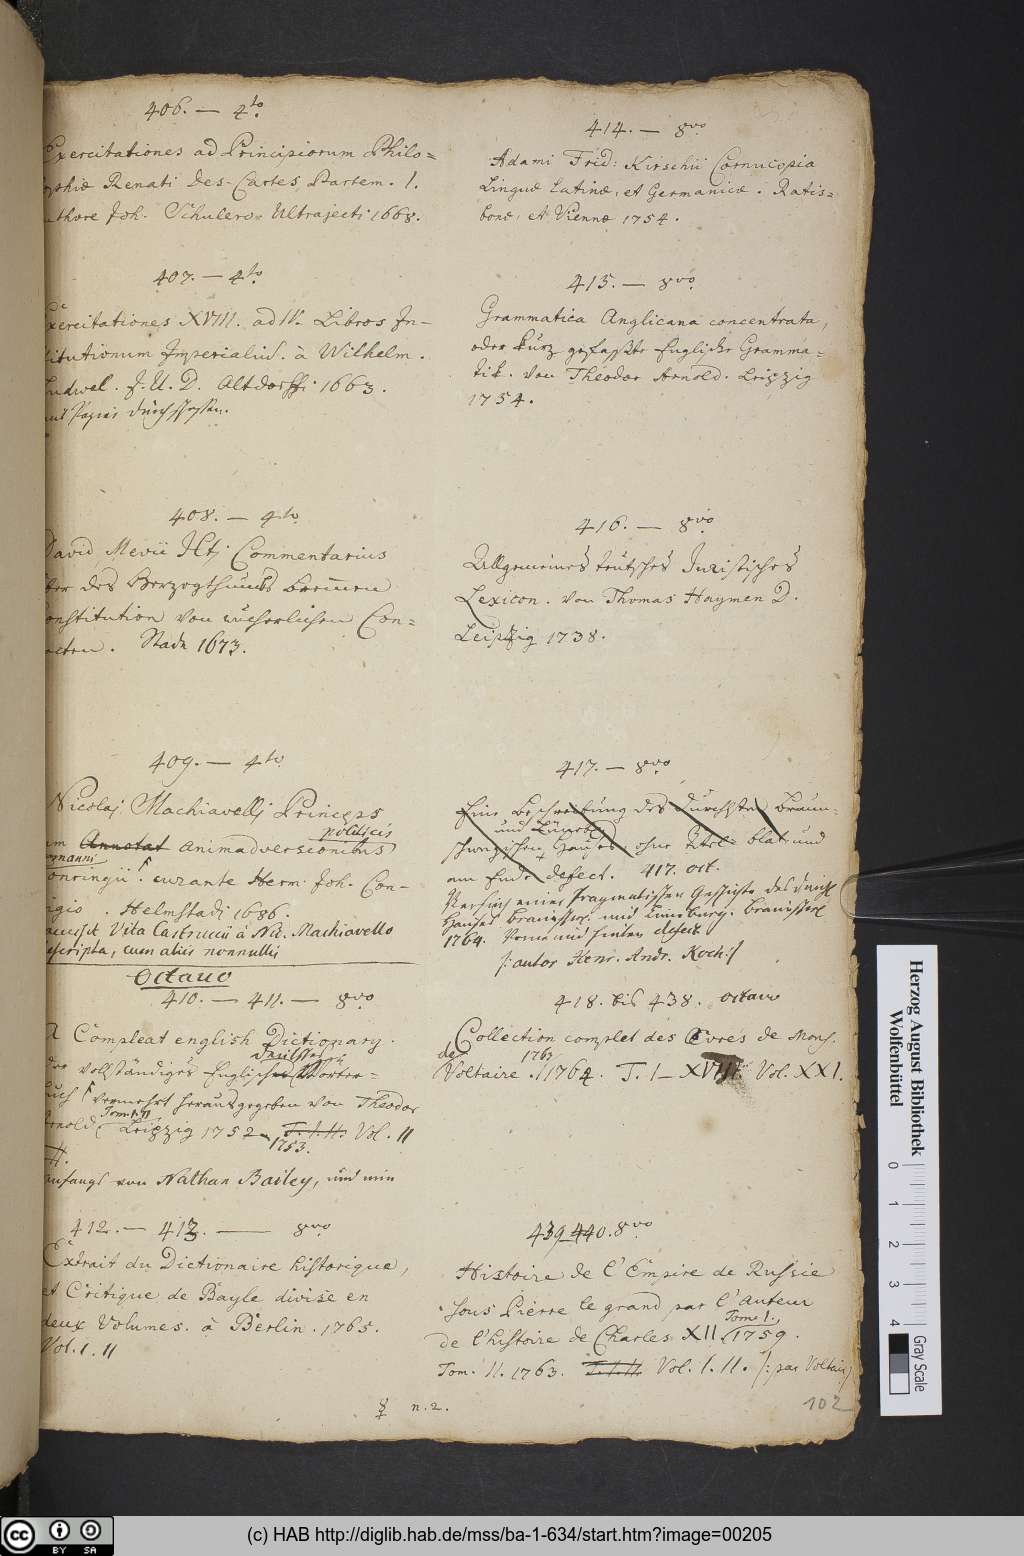 406. — 4to.
Exercitationes ad Principiorum Philo=
sophiæ Renati Des-Cartes Partem. I.
authore Joh. Schulero. Ultrajecti 1668.
407. — 4to.
Exercitationes XVIII. ad IV. Libros In–
stitutionum Imperialiu. à Wilhelm.
Ludwel. J. U. D. Altdorffi 1663.
mit Papier durchschossen.
408. — 4to.
David Mevii Icti Commentarius
über des Herzogthumbs Bremen
Constitution von wucherlichen Con=
tracten. Stade 1673.
409. — 4to.
Nicolaj Machiavellj Princeps
politicis
cum Annotat animadversionibus
Hermanni
Conringii curante Herm. Joh. Con–
ringio. Helmstadi 1686.
accessit Vita Castruccii à Nic. Machiavello
descripta, cum aliis nonnullis
Octavo
410. — 411. — 8vo.
A Compleat english Dictionary.
deutsches
oder vollständiges Englisches Wörter=
buch vermehrt herausgegeben von Theodor
Tom. I. II
Arnold Leipzig 1752 T. I. II. Vol. II
1753.
anfangs von Nathan Bailey, und nun
412. — 413. — 8vo.
Extrait du Dictionaire historique,
et Critique de Bayle divisé en
deux Volumes. à Berlin. 1765.
Vol. I. II
n. 2.
414. — 8vo
Adami Frid: Kirschii Cornucopia
Linguæ Latinæ, et Germanicæ. Ratis=
bonæ, et Viennæ 1754.
415. — 8vo.
Grammatica Anglicana concentrata,
oder kurz gefasste Englische Gramma=
tik. von Theodor Arnold. Leipzig
1754.
416. — 8vo.
Allgemeines teutsches Juristisches
Lexicon. von Thomas Haymen D.
Leipzig 1738.
417. — 8vo
Eine Beschreibung des Durchlten Braun=
und Lüneb.
schweigischen Hauses ohne Titel=blat und
am Ende defect. 417. oct.
Versuch einer Pragmatischen Geschichte des Durchl.
Hauses Braunschw. und Lüneburg. Braunschw.
1764. vorne und hinten defect
/: autor Henr. Andr. Koch :/
418. bis 438. octavo
Collection complet des Œvres de Mons.
de 1763
Voltaire. 1764. T. I–XVIII. Vol. XXI.
439–440. 8vo.
Histoire de l'Empire de Russie
sous Pierre le grand par l'Auteur
Tom. I.
de l'histoire de Charles XII. 1759.
Tom. II. 1763. T. I. II. Vol. I. II. (: par Voltair)
102
Herzog August Bibliothek
Wolfenbüttel
0 1 2 3 4
Gray Scale
cc BY SA
(c) HAB http://diglib.hab.de/mss/ba-1-634/start.htm?image=00205